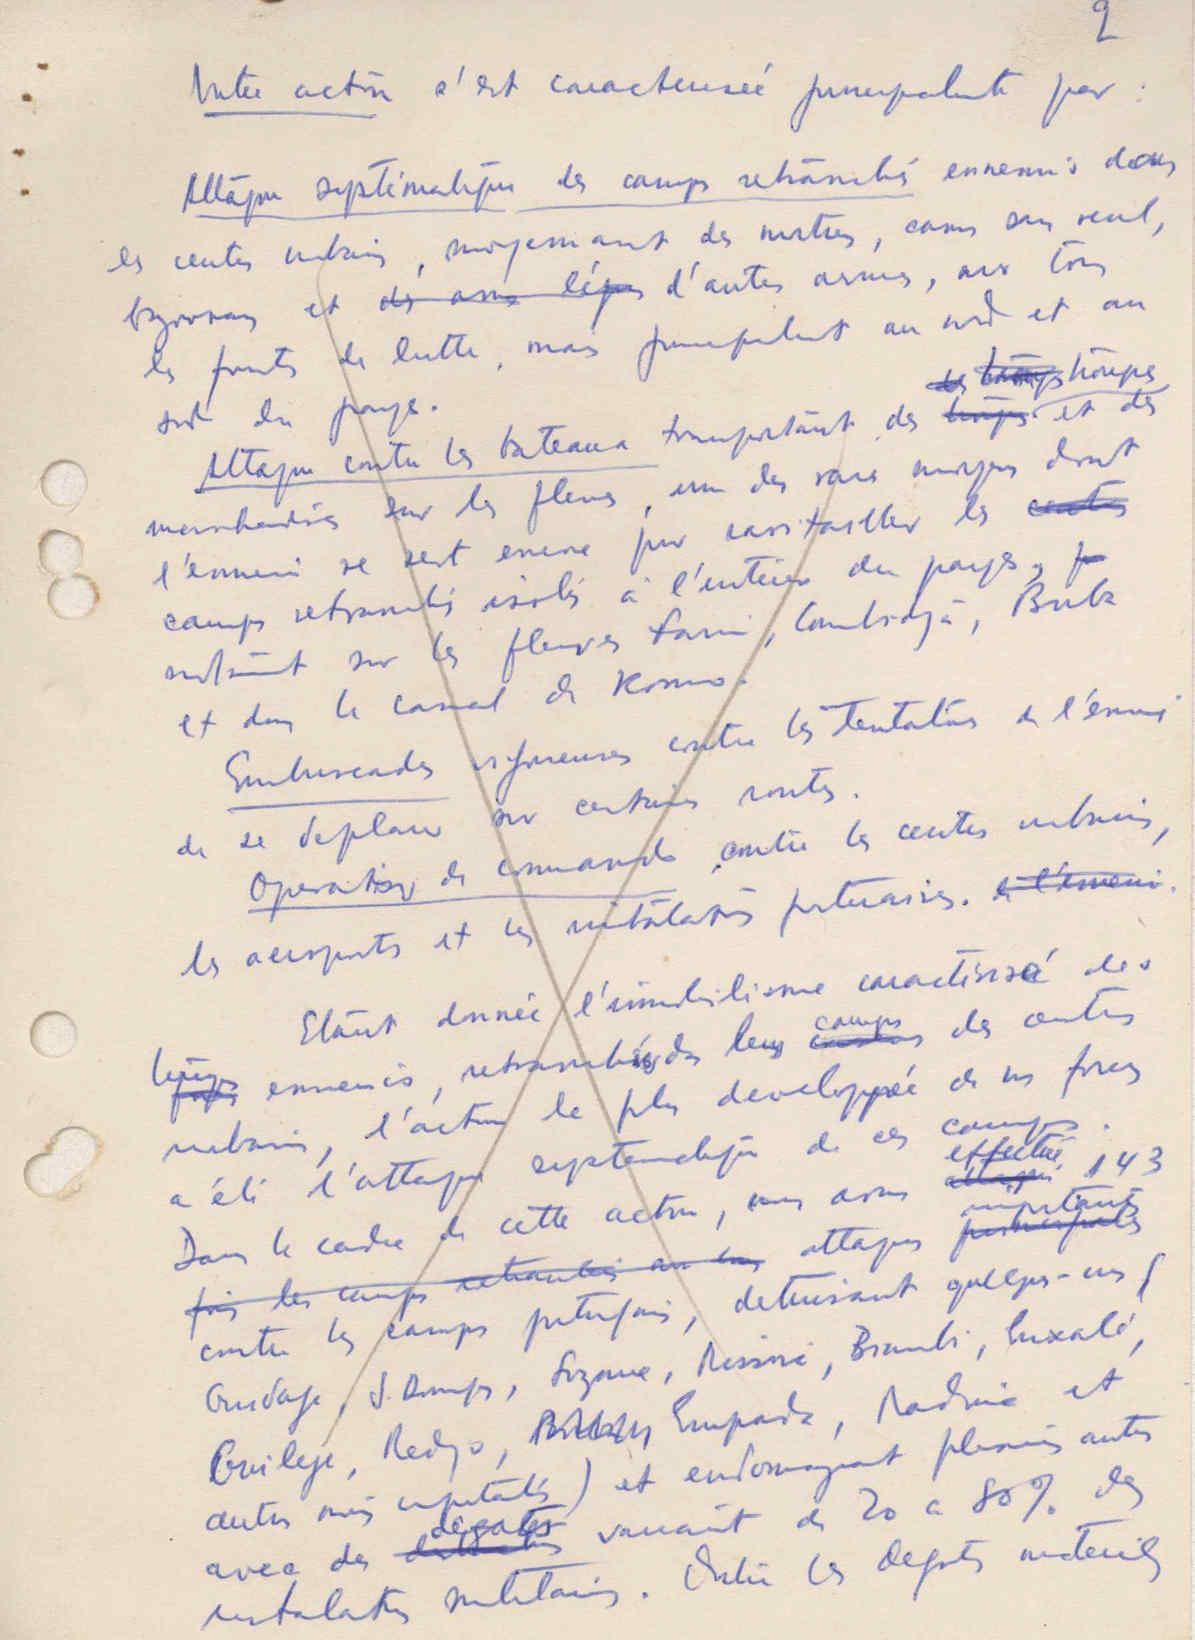 2
Notre action s'est caracterisée principalemente par :
Attaque systématique des camps retranchés ennemis dans
les centres urbains, moyennant des mortiers, canons sans recul,
bazookas et des armes légères d'autres armes, sur tous
les fronts de lutte, mais principalement au nord et au
sud du pays.
des troupes
Attaque contre les bateaux transportant des et des
marchandises sur les fleuves, un des rares moyens dont
l'ennemi se sert encore pour ravitailler les centres
camps retranchés isolés à l'intérieur du pays,
notamment sur les fleuves Farim, Combidjã, Buba
et dans le canal de Komo.
Embuscades vigoureuses contre les tentatives de l'ennemi
de se deplacer sur certaines routes.
Operations de commando contre les centres urbains,
les aeroports et les installations portuaires. de l'ennemi.
Etant donnée l'immobilisme caracterisé des
camps
troupes ennemies, retranchées dans leurs des centres
urbains, l'action la plus developpée de nos forces
a été l'attaque systematique de ces camps.
effectué
Dans le cadre de cette action, nous avons attaqué 143
importants
fois les camps retranchés attaques principales
contre les camps portugais, detruisant quelques-uns (
Guidage, S. Domingos, Biambi, Enxalé,
Guileje, Empada, Madina et
autres moins importants) et endomageant plusieurs autres
dégats
avec des variant de 20 a 80% des
installations militaires. Outre les degats materiels